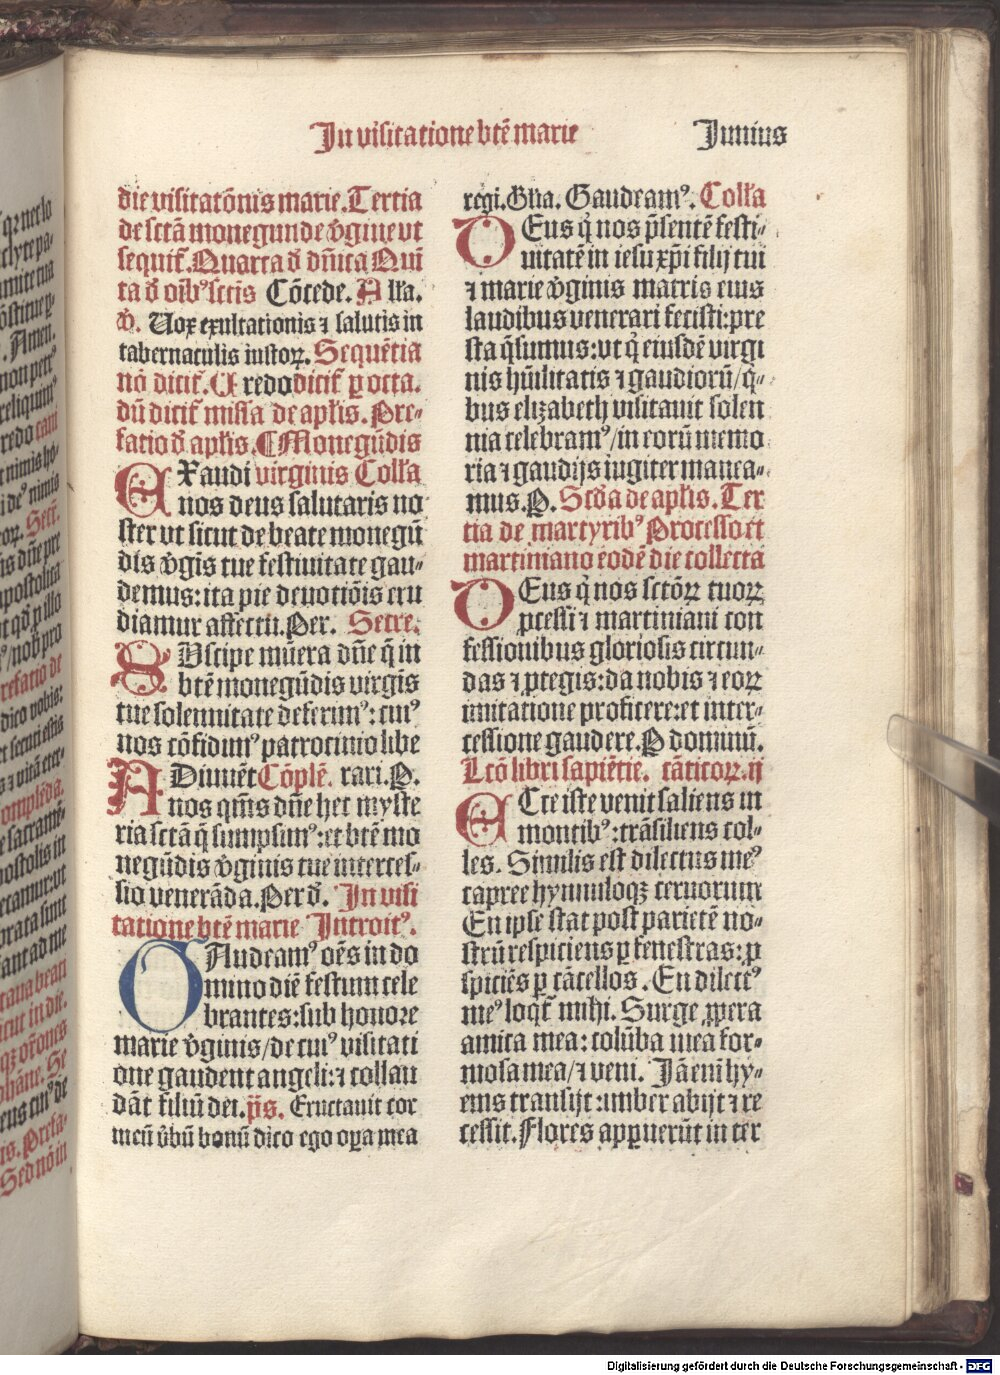 In visitatione btē marie Junius
die visitatōnis marie. Tertia
de sctā monegunde v̄gine vt
sequit᷑. Quarta d̄ dñica Qui
ta d̄ oīb⁹ sctīs Cōcede. Alľa.
v̄. Uox exultationis ⁊ salutis in
tabernaculis iustoꝝ. Sequētia
nō dicit᷑. Credo dicit᷑ ꝑ octa.
dū dicit᷑ missa de apľis. Pre⸗
fatio d̄ apľis. ¶ Monegūdis
EXaudi virginis Colľa
nos deus salutaris no
ster vt sicut de beate monegū
dis v̄gīs tue festiuitate gau⸗
demus: ita pie deuotiōis eru
diamur affectu. Per. Secre.
SUscipe mūera dñe q̄ in
btē monegūdis virgīs
tue solennitate deferim⁹: cui⁹
nos cōfidim⁹ patrocinio libe
ADiuuēt Cōplē. rari. P.
nos qm̄s dñe hec myste
ria sctā q̄ sumpsim⁹: et btē mo
negūdis v̄ginis tue interces⸗
sio venerāda. Per d̄. In visi
tatione btē marie Introit⁹.
GAudeam⁹ oēs in do
mino diē festum cele
brantes: sub honore
marie v̄ginis/de cui⁹ visitati
one gaudent angeli: ⁊ collau
dāt filiū dei. p̄s. Eructauit cor
meū v̄bū bonū dico ego oꝑa mea
regi. Glia. Gaudeam⁹. Colľa
DEus q̄ nos p̄sentē festi⸗
uitatē in iesu xp̄i filij tui
⁊ marie v̄ginis matris eius
laudibus venerari fecisti: pre
sta q̄sumus: vt q̄ eiusdē virgi
nis hūilitatis ⁊ gaudiorū/q̄⸗
bus elizabeth visitauit solen
nia celebram⁹/in eorū memo
ria ⁊ gaudijs iugiter manea⸗
mus. P. Scďa de apľis. Ter
tia de martyrib⁹ Processo et
martiniano eodē die collecta
DEus q̄ nos sctōꝝ tuoꝝ
ꝓcessi ⁊ martiniani con
fessionibus gloriosis circun⸗
das ⁊ ꝓtegis: da nobis ⁊ eoꝝ
imitatione proficere: et inter⸗
cessione gaudere. P dominū.
Lcō libri sapiētie. cāticoꝝ. ij
ECce iste venit saliens in
montib⁹: trāsiliens col⸗
les. Similis est dilectus me⁹
capree hynnuloqꝫ ceruorum
En ipse stat post parietē no⸗
strū respiciens ꝑ fenestras: ꝓ
spiciēs ꝑ cācellos. En dilect⁹
me⁹ loqt᷑ mihi. Surge ꝓpera
amica mea: colūba mea for⸗
mosa mea/⁊ veni. Jā enī hy⸗
ems transijt: imber abijt ⁊ re
cessit. Flores apꝑuerūt in ter
Digitalisierung gefördert durch die Deutsche Forschungsgemeinschaft - DFG